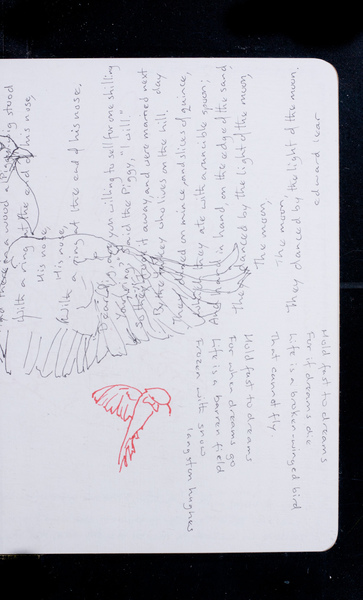 in a wood a Piggy stood
With a ring at the end of his nose,
His nose,
His nose,
With a ring at the end of his nose.
"Dear Pig, are you willing to sell for one shilling
Your ring?" said the Piggy, "I will"
So they took it away, and were married next day
By the turkey who lives on the hill.
They dined on mince, and slices of quince,
which they ate with a runcible spoon;
And hand in hand, on the edge of the sand,
They danced by the light of the moon,
The moon,
The moon,
They danced by the light of the moon.
edward lear
Hold fast to dreams
For if dreams die
Life is a broken-winged bird
That cannot fly.
Hold fast to dreams
For when dreams go
Life is a barren field
Frozen with snow
langston hughes